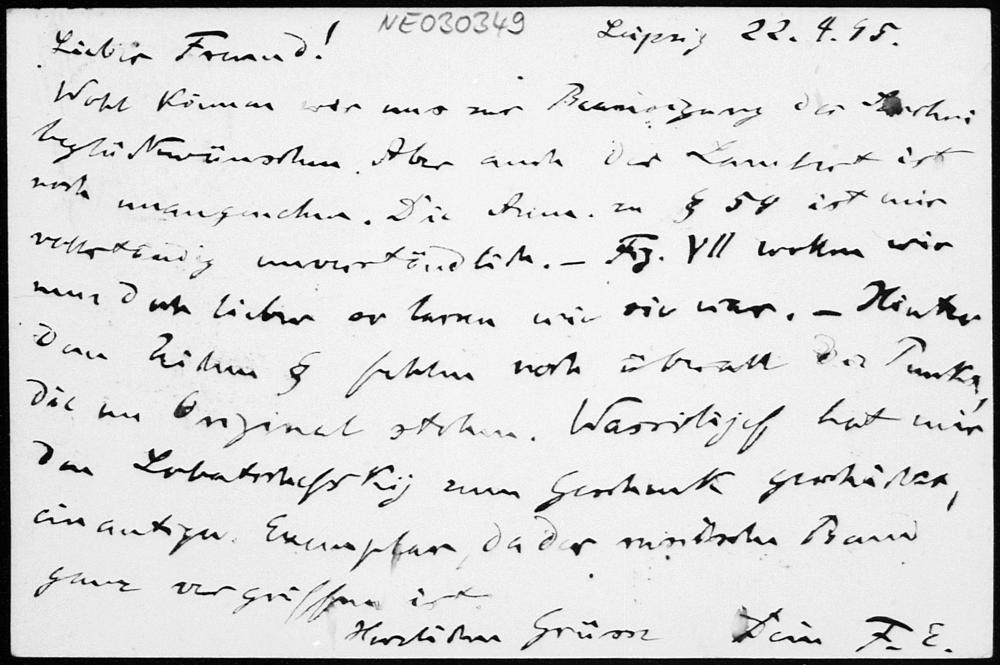 NE030349
Leipzig 22.4.95.
Lieber Freund!
Wohl können wir uns zur Beendigung der
beglückwünschen. Aber auch der Lambert ist
noch unangenehm. Die Anm. zu § 59 ist mir
vollständig unverständlich. – Fig. VII wollen wir
nun doch lieber so lassen wie sie war. – Hinter
dem Zeichen § fehlen noch überall die Punkte,
die im Original stehen. Wassiljef hat mir
den Lobatschefskij zum Geschenk geschickt,
ein antiqu. Exemplar, da der russische Band
ganz vergriffen ist.
Herzlichen Grüsse Dein F. E.